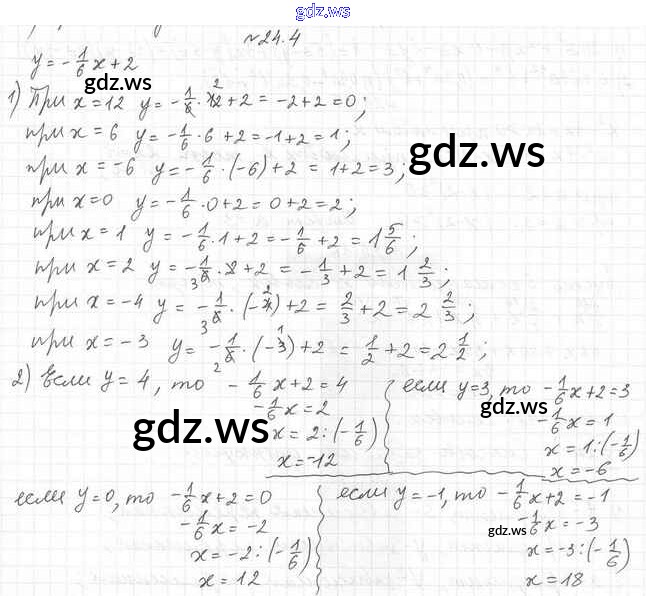 gdz.ws
№24.4
y = -1/6 x + 2
gdz.ws
1) При x = 12 y = -1/6 · 12 + 2 = -2 + 2 = 0;
при x = 6 y = -1/6 · 6 + 2 = -1 + 2 = 1;
gdz.ws
при x = -6 y = -1/6 · (-6) + 2 = 1 + 2 = 3;
при x = 0 y = -1/6 · 0 + 2 = 0 + 2 = 2;
при x = 1 y = -1/6 · 1 + 2 = -1/6 + 2 = 1 5/6;
при x = 2 y = -1/6 · 2 + 2 = -1/3 + 2 = 1 2/3;
при x = -4 y = -1/6 · (-4) + 2 = 2/3 + 2 = 2 2/3;
при x = -3 y = -1/6 · (-3) + 2 = 1/2 + 2 = 2 1/2;
2) Если y = 4, то -1/6 x + 2 = 4
-1/6 x = 2
x = 2 : (-1/6)
x = -12
gdz.ws
если y = 3, то -1/6 x + 2 = 3
gdz.ws
-1/6 x = 1
x = 1 : (-1/6)
x = -6
если y = 0, то -1/6 x + 2 = 0
-1/6 x = -2
x = -2 : (-1/6)
x = 12
если y = -1, то -1/6 x + 2 = -1
gdz.ws
-1/6 x = -3
x = -3 : (-1/6)
x = 18